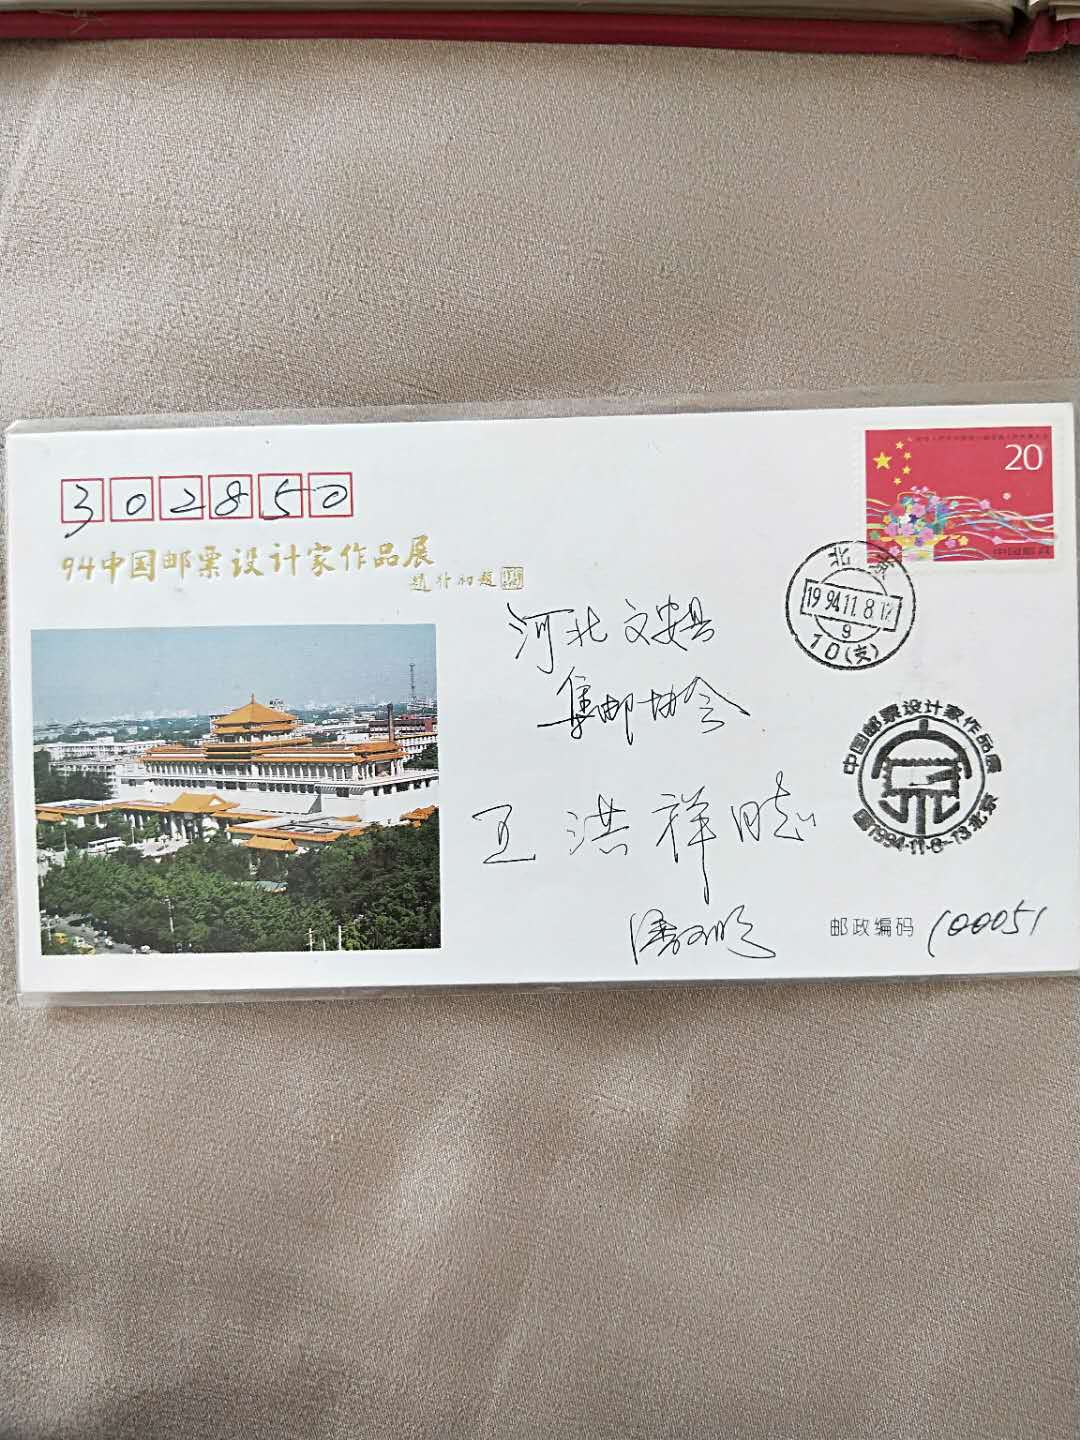 302850
94中国邮票设计家作品展
20
中国邮政
北京
1994.11.8.12
9
10(支)
河北文安县
集邮协会
王洪祥同志
中国邮票设计家作品展
1994·11·8-13北京
邮政编码 100051